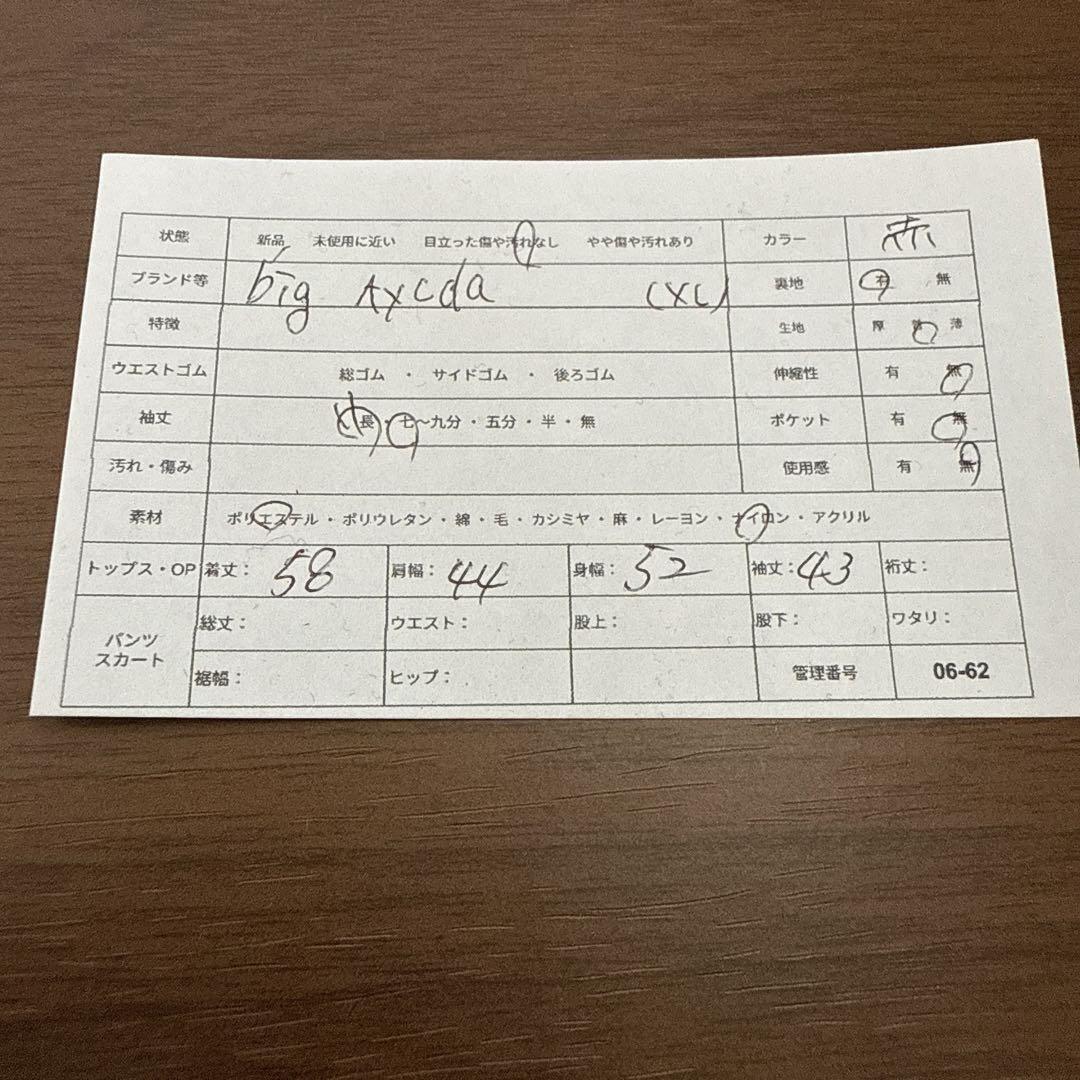 状態 新品 未使用に近い 目立った傷や汚れなし やや傷や汚れあり カラー 赤
ブランド等 big (XL) 裏地 有 無
特徴 生地 厚 普 薄
ウエストゴム 総ゴム ・ サイドゴム ・ 後ろゴム 伸縮性 有 無
袖丈 長・七〜九分・五分・半・無 ポケット 有 無
汚れ・傷み 使用感 有 無
素材 ポリエステル・ポリウレタン・綿・毛・カシミヤ・麻・レーヨン・ナイロン・アクリル
トップス・OP 着丈：58 肩幅：44 身幅：52 袖丈：43 裄丈：
パンツ スカート 総丈： ウエスト： 股上： 股下： ワタリ：
裾幅： ヒップ： 管理番号 06-62